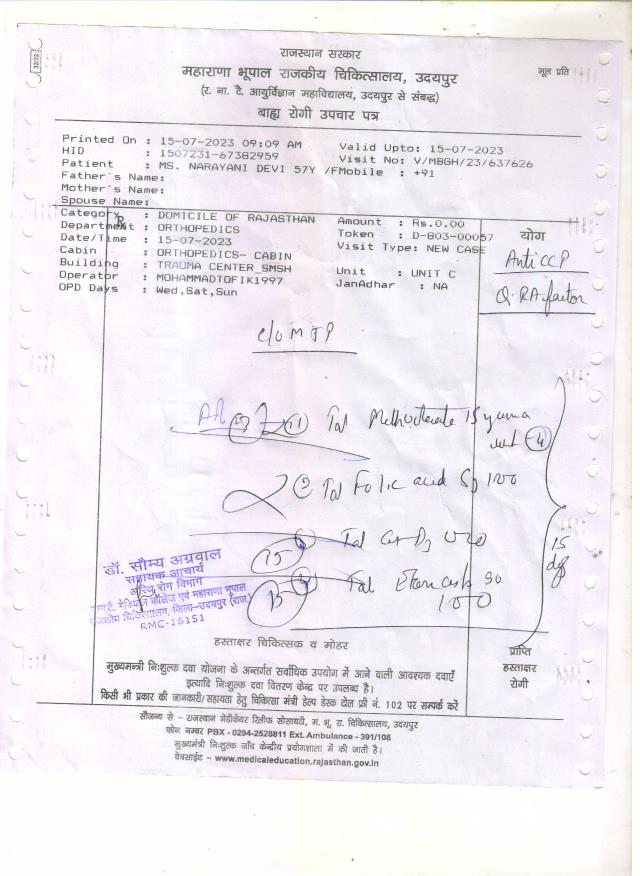 3272
राजस्थान सरकार
महाराणा भूपाल राजकीय चिकित्सालय, उदयपुर
मूल प्रति
(र. ना. टै. आयुर्विज्ञान महाविद्यालय, उदयपुर से संबद्ध)
बाह्य रोगी उपचार पत्र
Printed On : 15-07-2023 09:09 AM Valid Upto: 15-07-2023
HID : 1507231-67382959 Visit No: V/MBGH/23/637626
Patient : MS. NARAYANI DEVI 57Y /FMobile : +91
Father's Name:
Mother's Name:
Spouse Name:
Category : DOMICILE OF RAJASTHAN Amount : Rs.0.00
Department : ORTHOPEDICS Token : D-803-00057
Date/Time : 15-07-2023 Visit Type: NEW CASE
Cabin : ORTHOPEDICS- CABIN
Building : TRAUMA CENTER_SMSH Unit : UNIT C
Operator : MOHAMMADTOFIK1997 JanAdhar : NA
OPD Days : Wed,Sat,Sun
R
योग
Anti CCP
Q. RA factor
c/o
Tab
Tab Folic acid
Tab
Tab
15
15
15
डॉ. सौम्य अग्रवाल
सहायक आचार्य
अस्थि रोग विभाग
मेडिकल कॉलेज एवं महाराणा भूपाल
राजकीय चिकित्सालय, जिला-उदयपुर (राज.)
RMC-16151
हस्ताक्षर चिकित्सक व मोहर
प्राप्ति
हस्ताक्षर
रोगी
मुख्यमन्त्री निःशुल्क दवा योजना के अन्तर्गत सर्वाधिक उपयोग में आने वाली आवश्यक दवाएँ
इत्यादि निःशुल्क दवा वितरण केन्द्र पर उपलब्ध है।
किसी भी प्रकार की जानकारी/सहायता हेतु चिकित्सा मंत्री हेल्प डेस्क टोल फ्री नं. 102 पर सम्पर्क करें
सौजन्य से - राजस्थान मेडीकेयर रिलीफ सोसायटी, म. भू. रा. चिकित्सालय, उदयपुर
फोन नम्बर PBX - 0294-2528811 Ext. Ambulance - 391/108
मुख्यमंत्री निःशुल्क जाँच केन्द्रीय प्रयोगशाला में की जाती है।
वेबसाईट - www.medicaleducation.rajasthan.gov.in